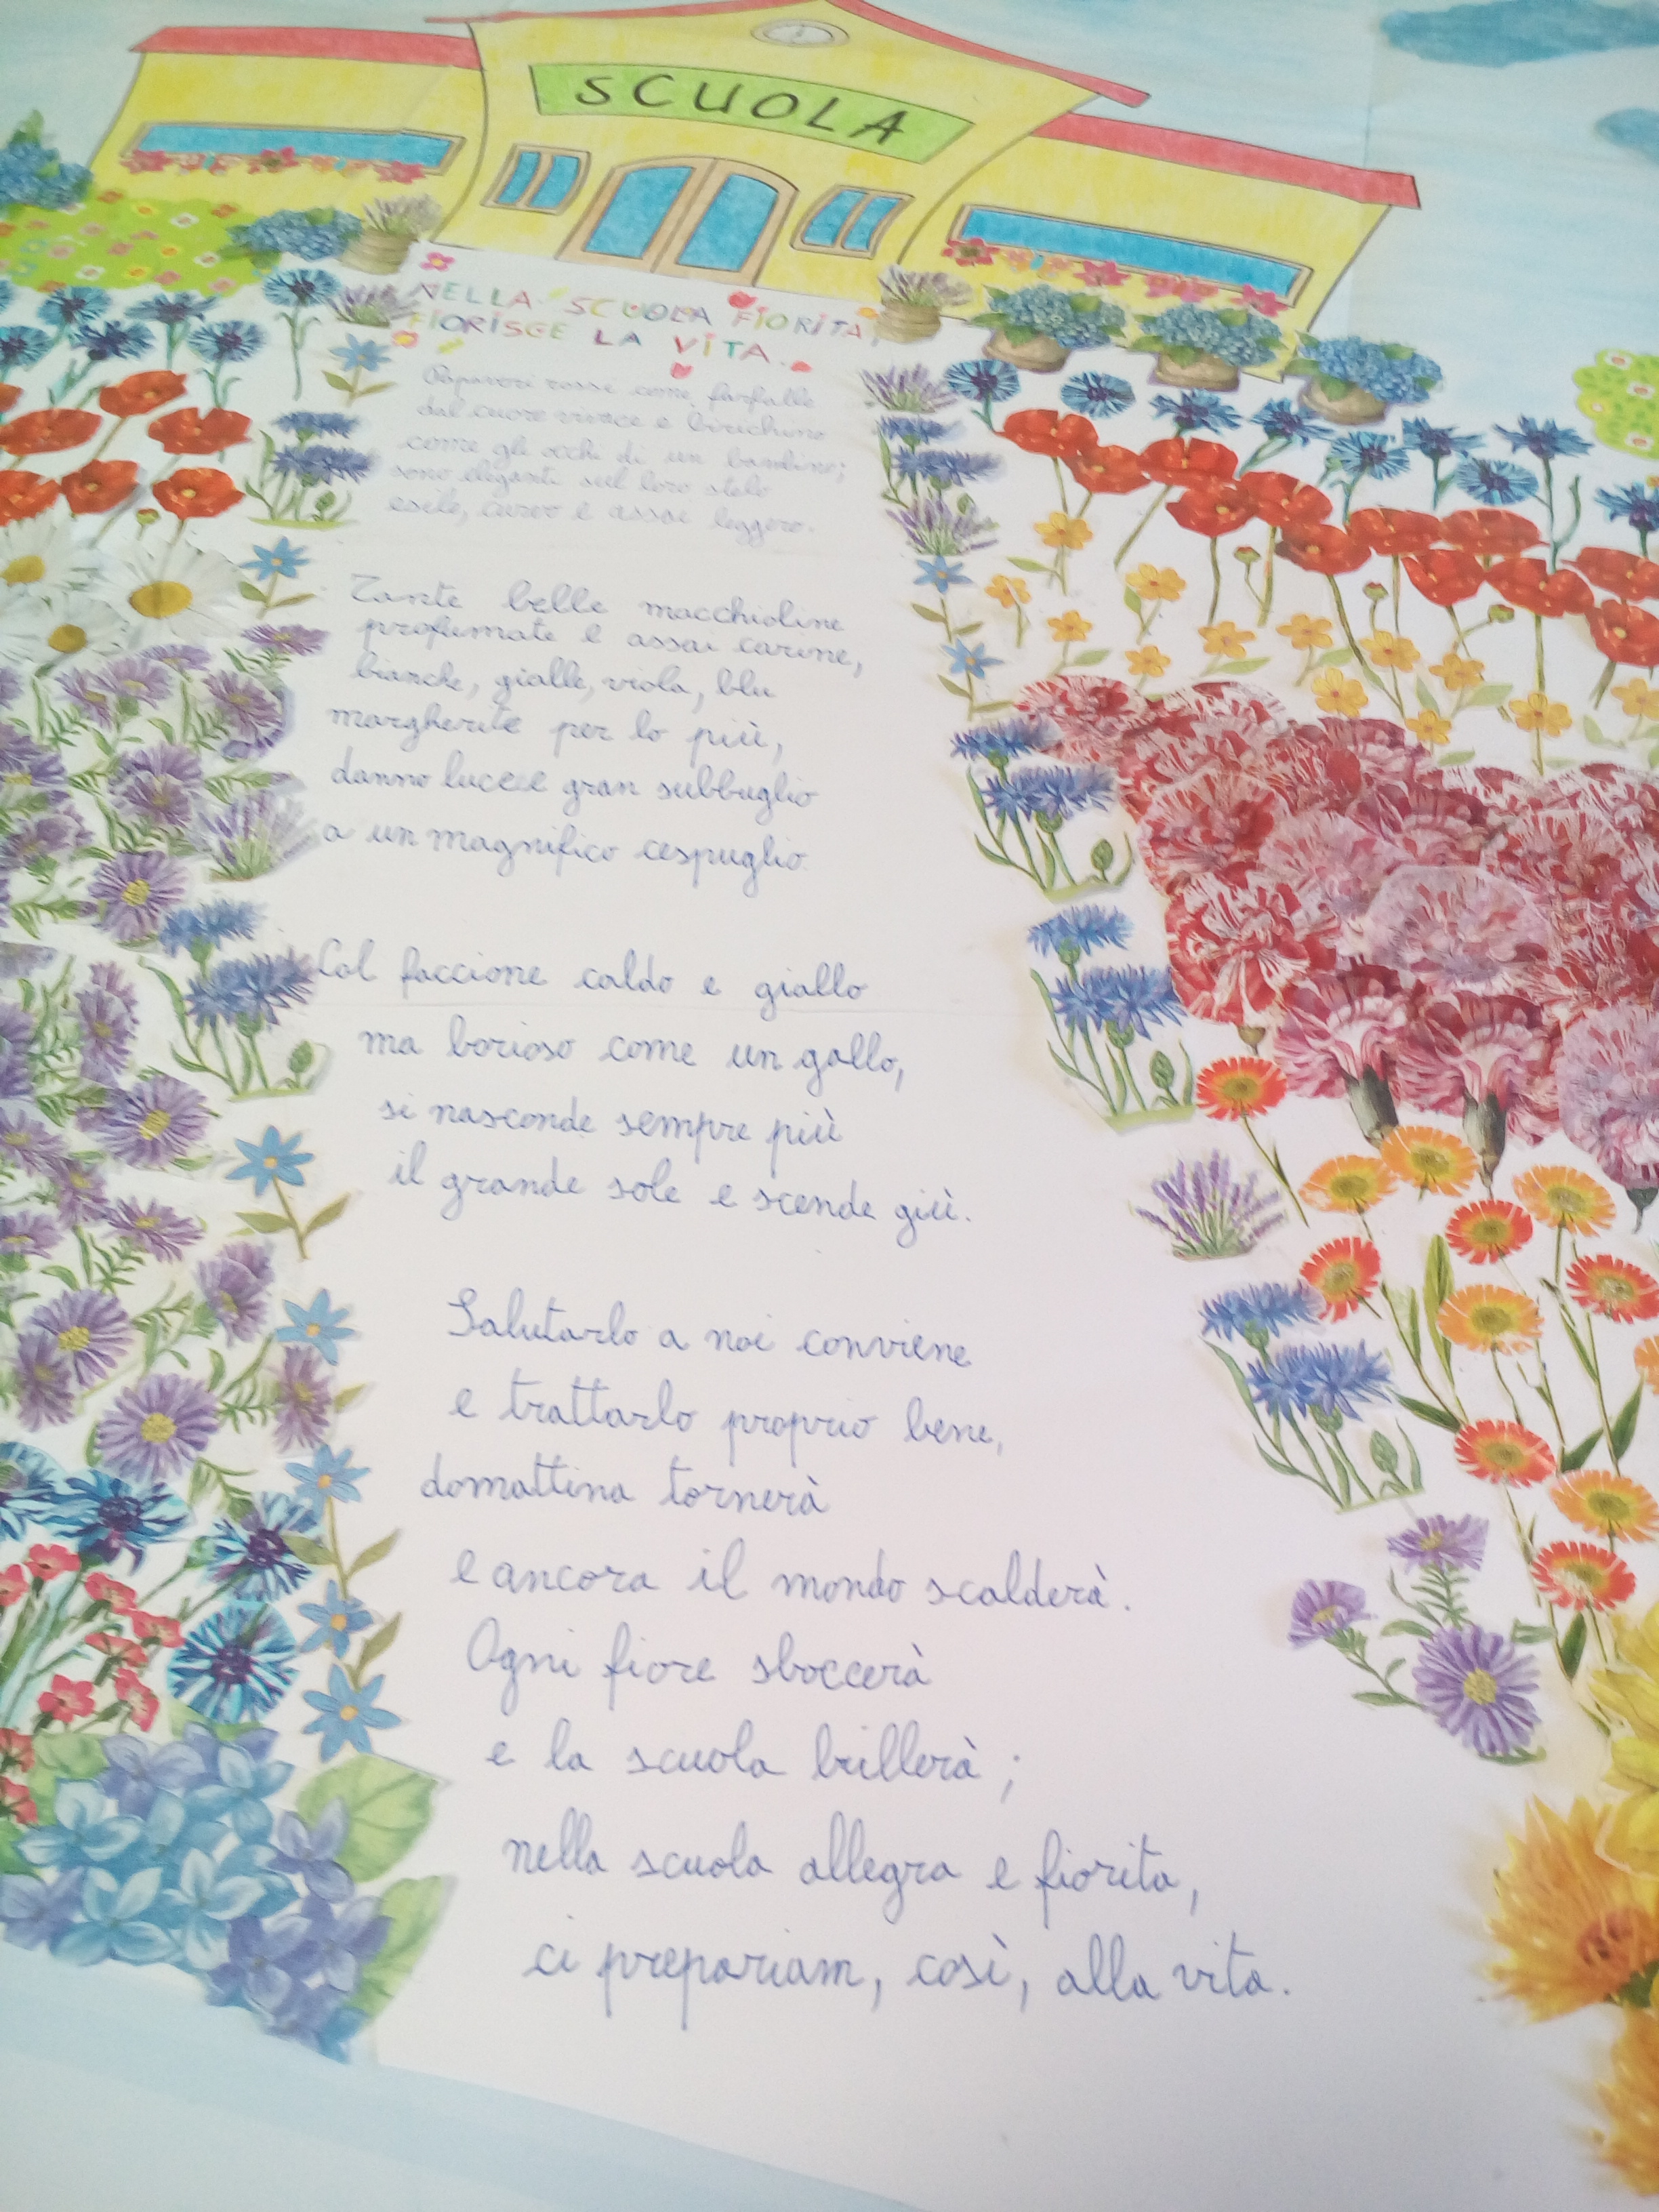 SCUOLA
NELLA SCUOLA FIORITA,
FIORISCE LA VITA.
Papaveri rossi come farfalle
dal cuore vivace e birichino
come gli occhi di un bambino;
sono eleganti sul loro stelo
esile, curvo e assai leggero.
Tante belle macchioline
profumate e assai carine,
bianche, gialle, viola, blu
margherite per lo più,
danno luce e gran subbuglio
a un magnifico cespuglio.
Col faccione caldo e giallo
ma borioso come un gallo,
si nasconde sempre più
il grande sole e scende giù.
Salutarlo a noi conviene
e trattarlo proprio bene,
domattina tornerà
e ancora il mondo scalderà.
Ogni fiore sboccerà
e la scuola brillerà;
nella scuola allegra e fiorita,
ci prepariam, così, alla vita.